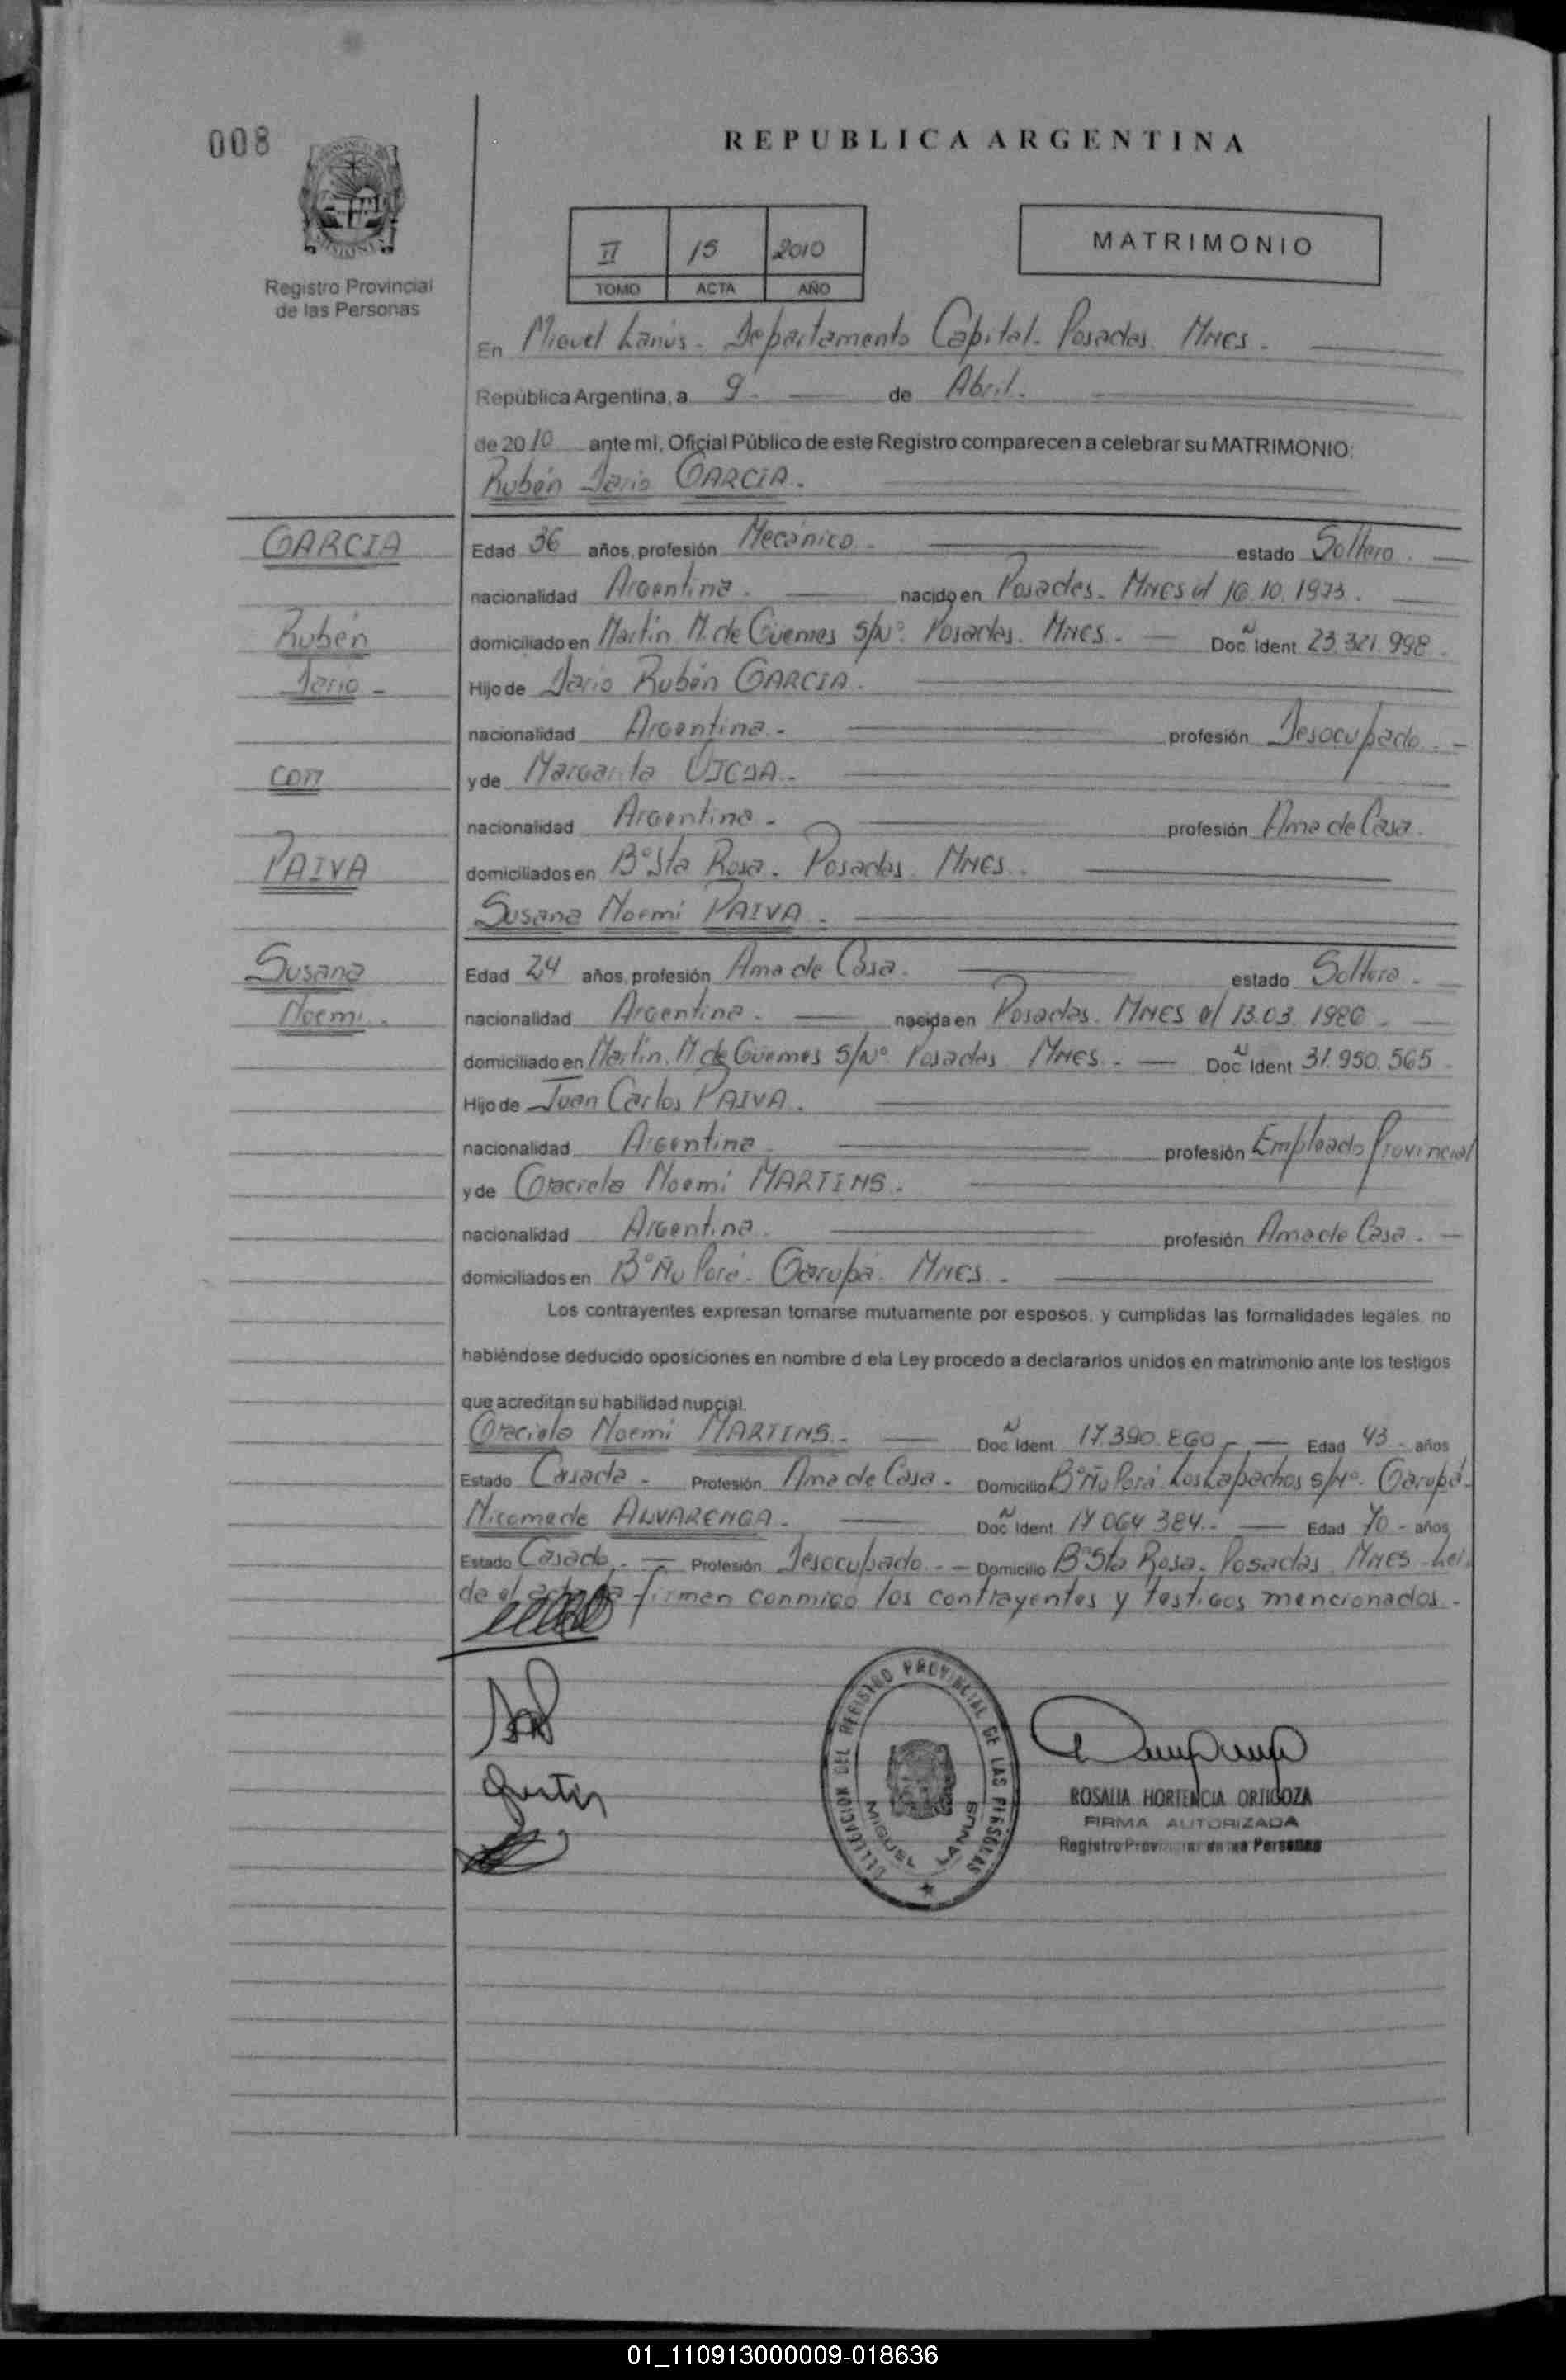 008
REPUBLICA ARGENTINA
II 15 2010
TOMO ACTA AÑO
MATRIMONIO
Registro Provincial
de las Personas
En Miguel Lanús - Departamento Capital - Posadas. Mnes -
República Argentina, a 9 - de Abril.
de 2010 ante mi, Oficial Público de este Registro comparecen a celebrar su MATRIMONIO:
Rubén Dario GARCIA.
GARCIA
Edad 36 años, profesión Mecánico - estado Soltero.
nacionalidad Argentina. nacido en Posadas - Mnes el 16.10.1973.
Rubén
domiciliado en Martín M. de Güemes S/Nº. Posadas. Mnes. - Doc. Ident. 23.321.998.
Dario -
Hijo de Dario Rubén GARCIA.
nacionalidad Argentina - profesión Desocupado. -
con
y de Margarita
nacionalidad Argentina - profesión Ama de Casa.
PAIVA
domiciliados en Bº Sta Rosa. Posadas. Mnes.
Susana Noemi PAIVA.
Susana
Edad 24 años, profesión Ama de Casa. estado Soltera.
Noemi.
nacionalidad Argentina. nacida en Posadas. Mnes el 13.03.1986 -
domiciliado en Martín. M de Güemes S/Nº Posadas Mnes. - Doc Ident 31.950.565
Hijo de Juan Carlos PAIVA.
nacionalidad Argentina profesión Empleado Provincial
y de Graciela Noemi MARTINS.
nacionalidad Argentina profesión Ama de Casa. -
domiciliados en Bº Ñu Porá. Garupá. Mnes -
Los contrayentes expresan tomarse mutuamente por esposos, y cumplidas las formalidades legales, no
habiéndose deducido oposiciones en nombre d ela Ley procedo a declararlos unidos en matrimonio ante los testigos
que acreditan su habilidad nupcial.
Graciela Noemi MARTINS. - Doc. Ident 17.390.860 - Edad 43 - años
Estado Casada - Profesión Ama de Casa - Domicilio Bº Ñu Porá Los Lapachos S/Nº. Garupá -
Nicomede ALVARENGA. Doc Ident 17 064 384. - Edad 70 - años
Estado Casado. - Profesión Desocupado. - Domicilio Bº Sta Rosa. Posadas. Mnes - Leí
da el acta firman conmigo los contrayentes y testigos mencionados -
DELEGACION DEL REGISTRO PROVINCIAL DE LAS PERSONAS
MIGUEL LANUS
ROSALIA HORTENCIA ORTIGOZA
FIRMA AUTORIZADA
Registro Provincial de las Personas
01_110913000009-018636